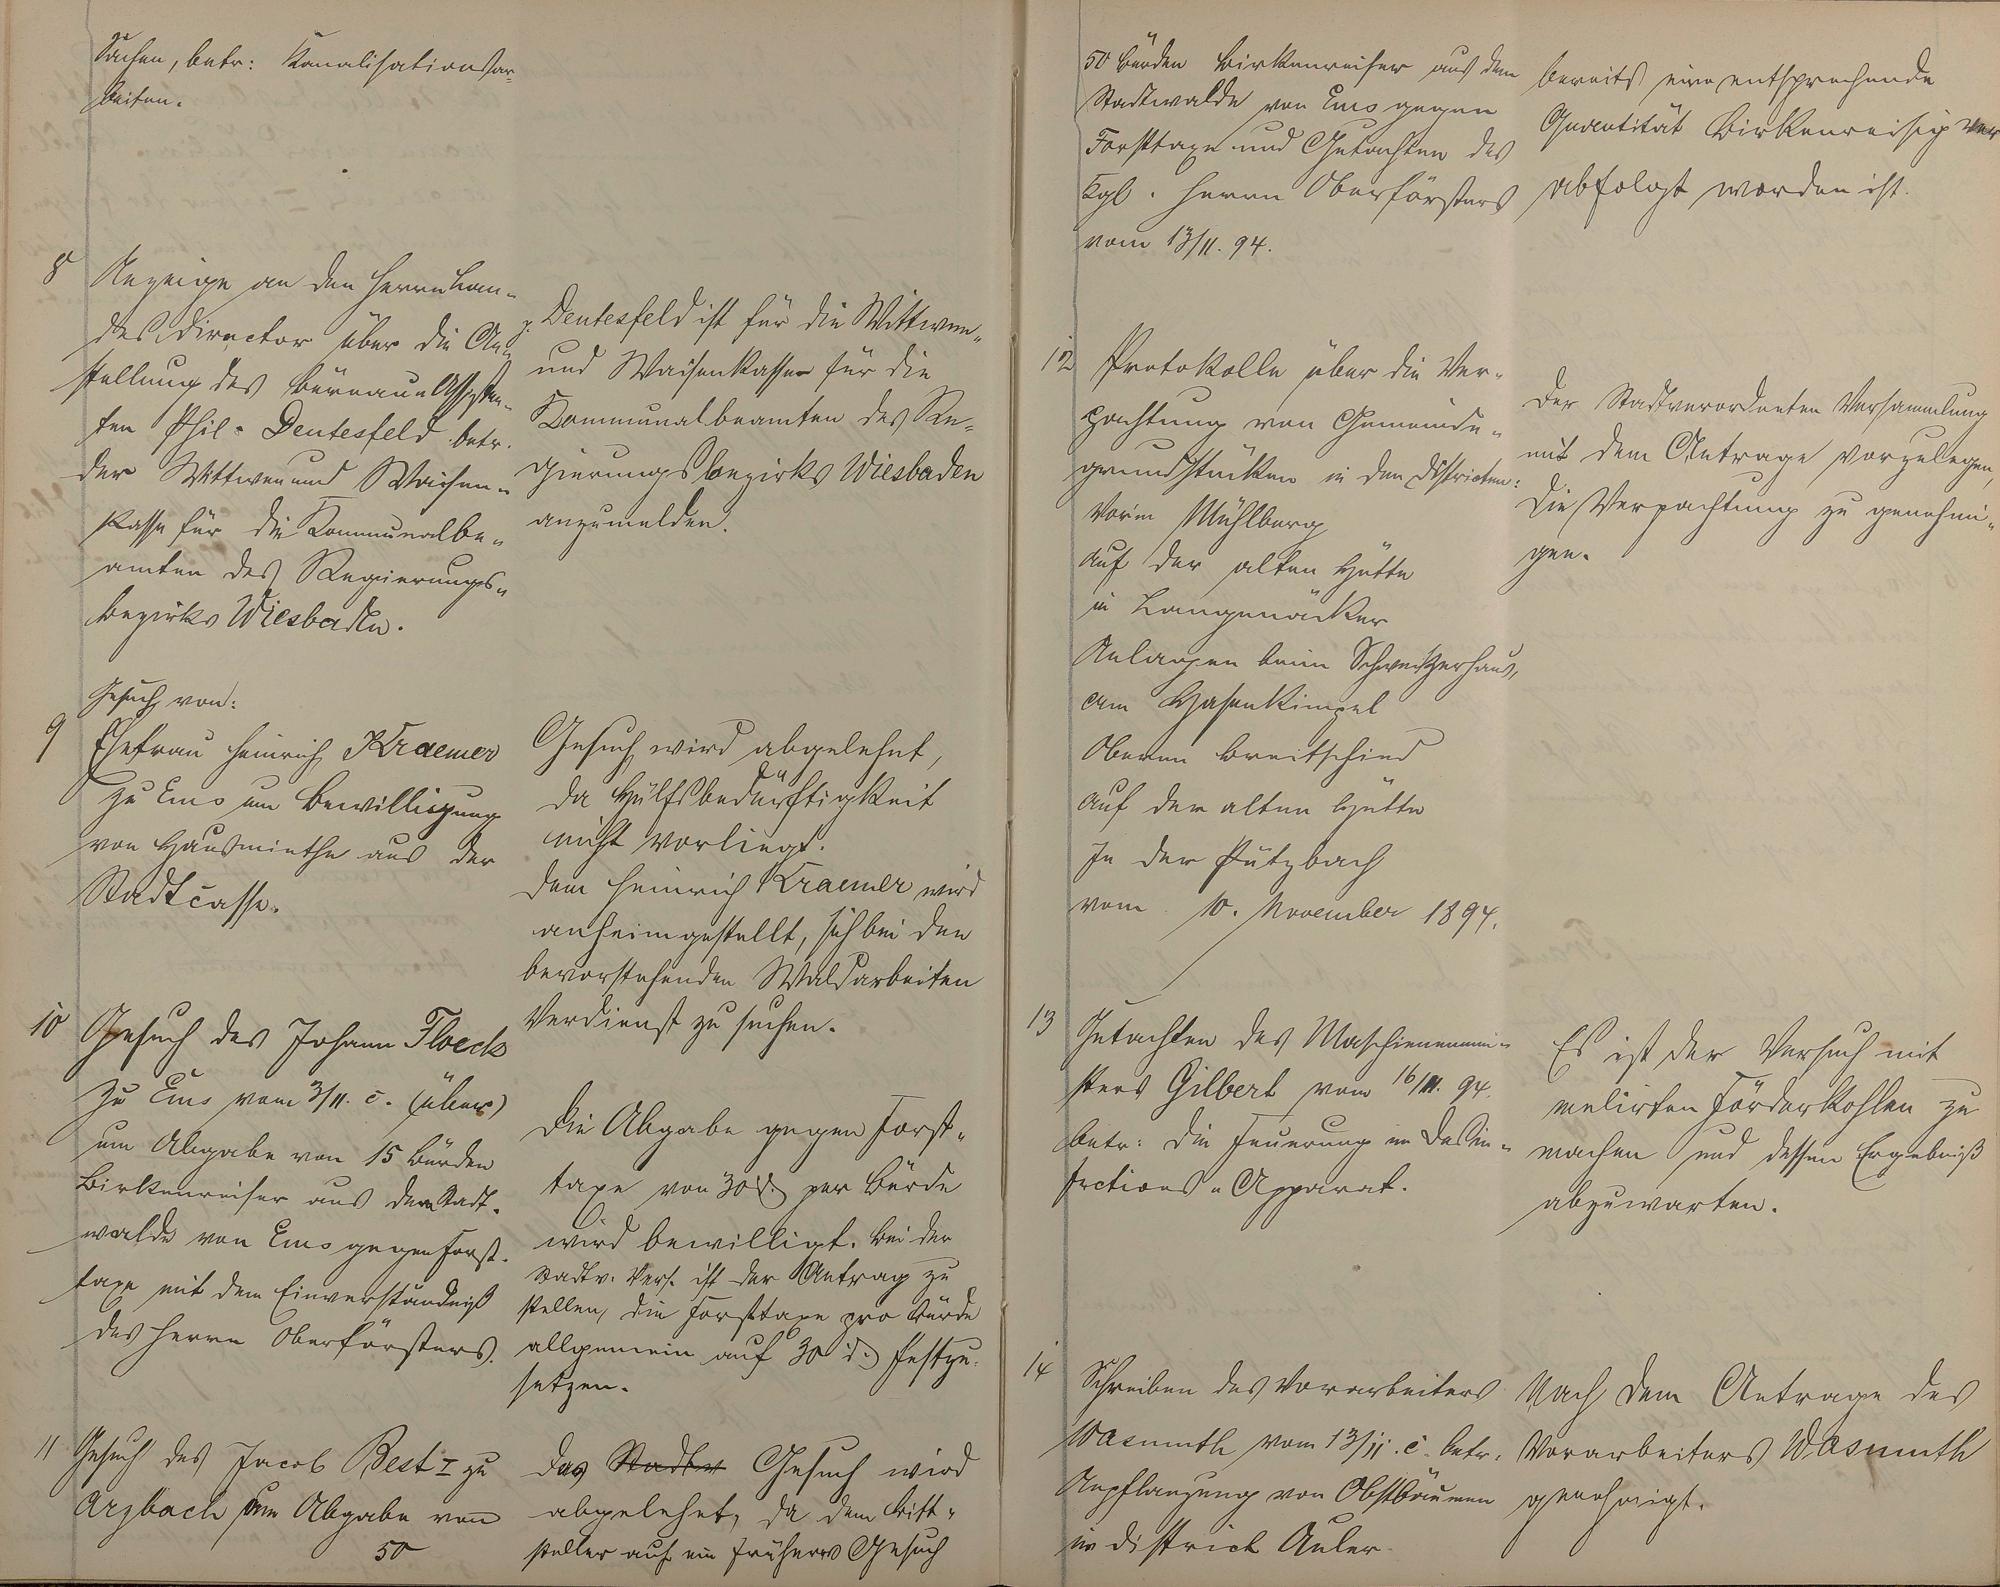 Sachen, betr: Kanalisationsar-
beiten.
8 Anzeige an den Herrn Lan-
des Director über die An-
stellung des Büreau Assisten-
ten Phil. Deutesfeld betr.
der Wittwen und Waisen-
kasse für die Kommunalbe-
amten des Regierungs-
bezirks Wiesbaden.
p. Deutesfeld ist für die Wittwen-
und Waisenkasse für die
Kommunalbeamten des Re-
gierungsbezirks Wiesbaden
anzumelden.
Gesuch von:
9 Ehefrau Heinrich Kraemer
zu Ems um Bewilligung
von Hausmiethe aus der
Stadtcasse.
Gesuch wird abgelehnt,
da Hülfsbedürftigkeit
nicht vorliegt.
Dem Heinrich Kraemer wird
anheimgestellt, sich bei den
bevorstehenden Waldarbeiten
Verdienst zu suchen.
10 Gesuch des Johann Floeck
zu Ems vom 3/11. c. (über)
um Abgabe von 15 Bürden
Birkenreiser aus dem Stadt-
walde von Ems gegen Forst-
taxe mit dem Einverständniß
des Herrn Oberförsters.
Die Abgabe gegen Forst-
taxe von 30 d. per Bürde
wird bewilligt. Bei der
Stadtv. Vers. ist der Antrag zu
stellen, die Forsttaxe pro Bürde
allgemein auf 30 d. festzu-
setzen.
11 Gesuch des Jacob Best I zu
Arzbach um Abgabe von
50
Das Stadtv Gesuch wird
abgelehnt, da dem Bitt-
steller auf ein früheres Gesuch
50 Bürden Birkenreiser aus dem
Stadtwalde von Ems gegen
Forsttaxe und Gutachten des
Kgl. Herrn Oberförsters
vom 13/11. 94.
bereits eine entsprechende
Quantität Birkenreisig ver
abfolgt worden ist.
12 Protokolle über die Ver-
pachtung von Gemeinde-
grundstücken in den Districten:
Vorm Mühlberg
auf der alten Hütte
in Langenäcker
Anlagen beim Schweitzerhaus,
am Hasenkimpel
Oberm Breitschied
auf der alten Hütte
In der Pützbach
vom 10. November 1894.
Der Stadtverordneten Versammlung
mit dem Antrage vorzulegen,
die Verpachtung zu genehmi-
gen.
13 Gutachten des Maschienenmei-
sters Gilbert vom 16/11. 94.
betr: die Feuerung im Desin-
fections-Apparat.
Es ist der Versuch mit
melirten Förderkohlen zu
machen und dessen Ergebniß
abzuwarten.
14 Schreiben des Vorarbeiters
Wasmuth vom 13/11. c. betr.
Anpflanzung von Obstbäumen
im District Auler
Nach dem Antrage des
Vorarbeiters Wasmuth
genehmigt.